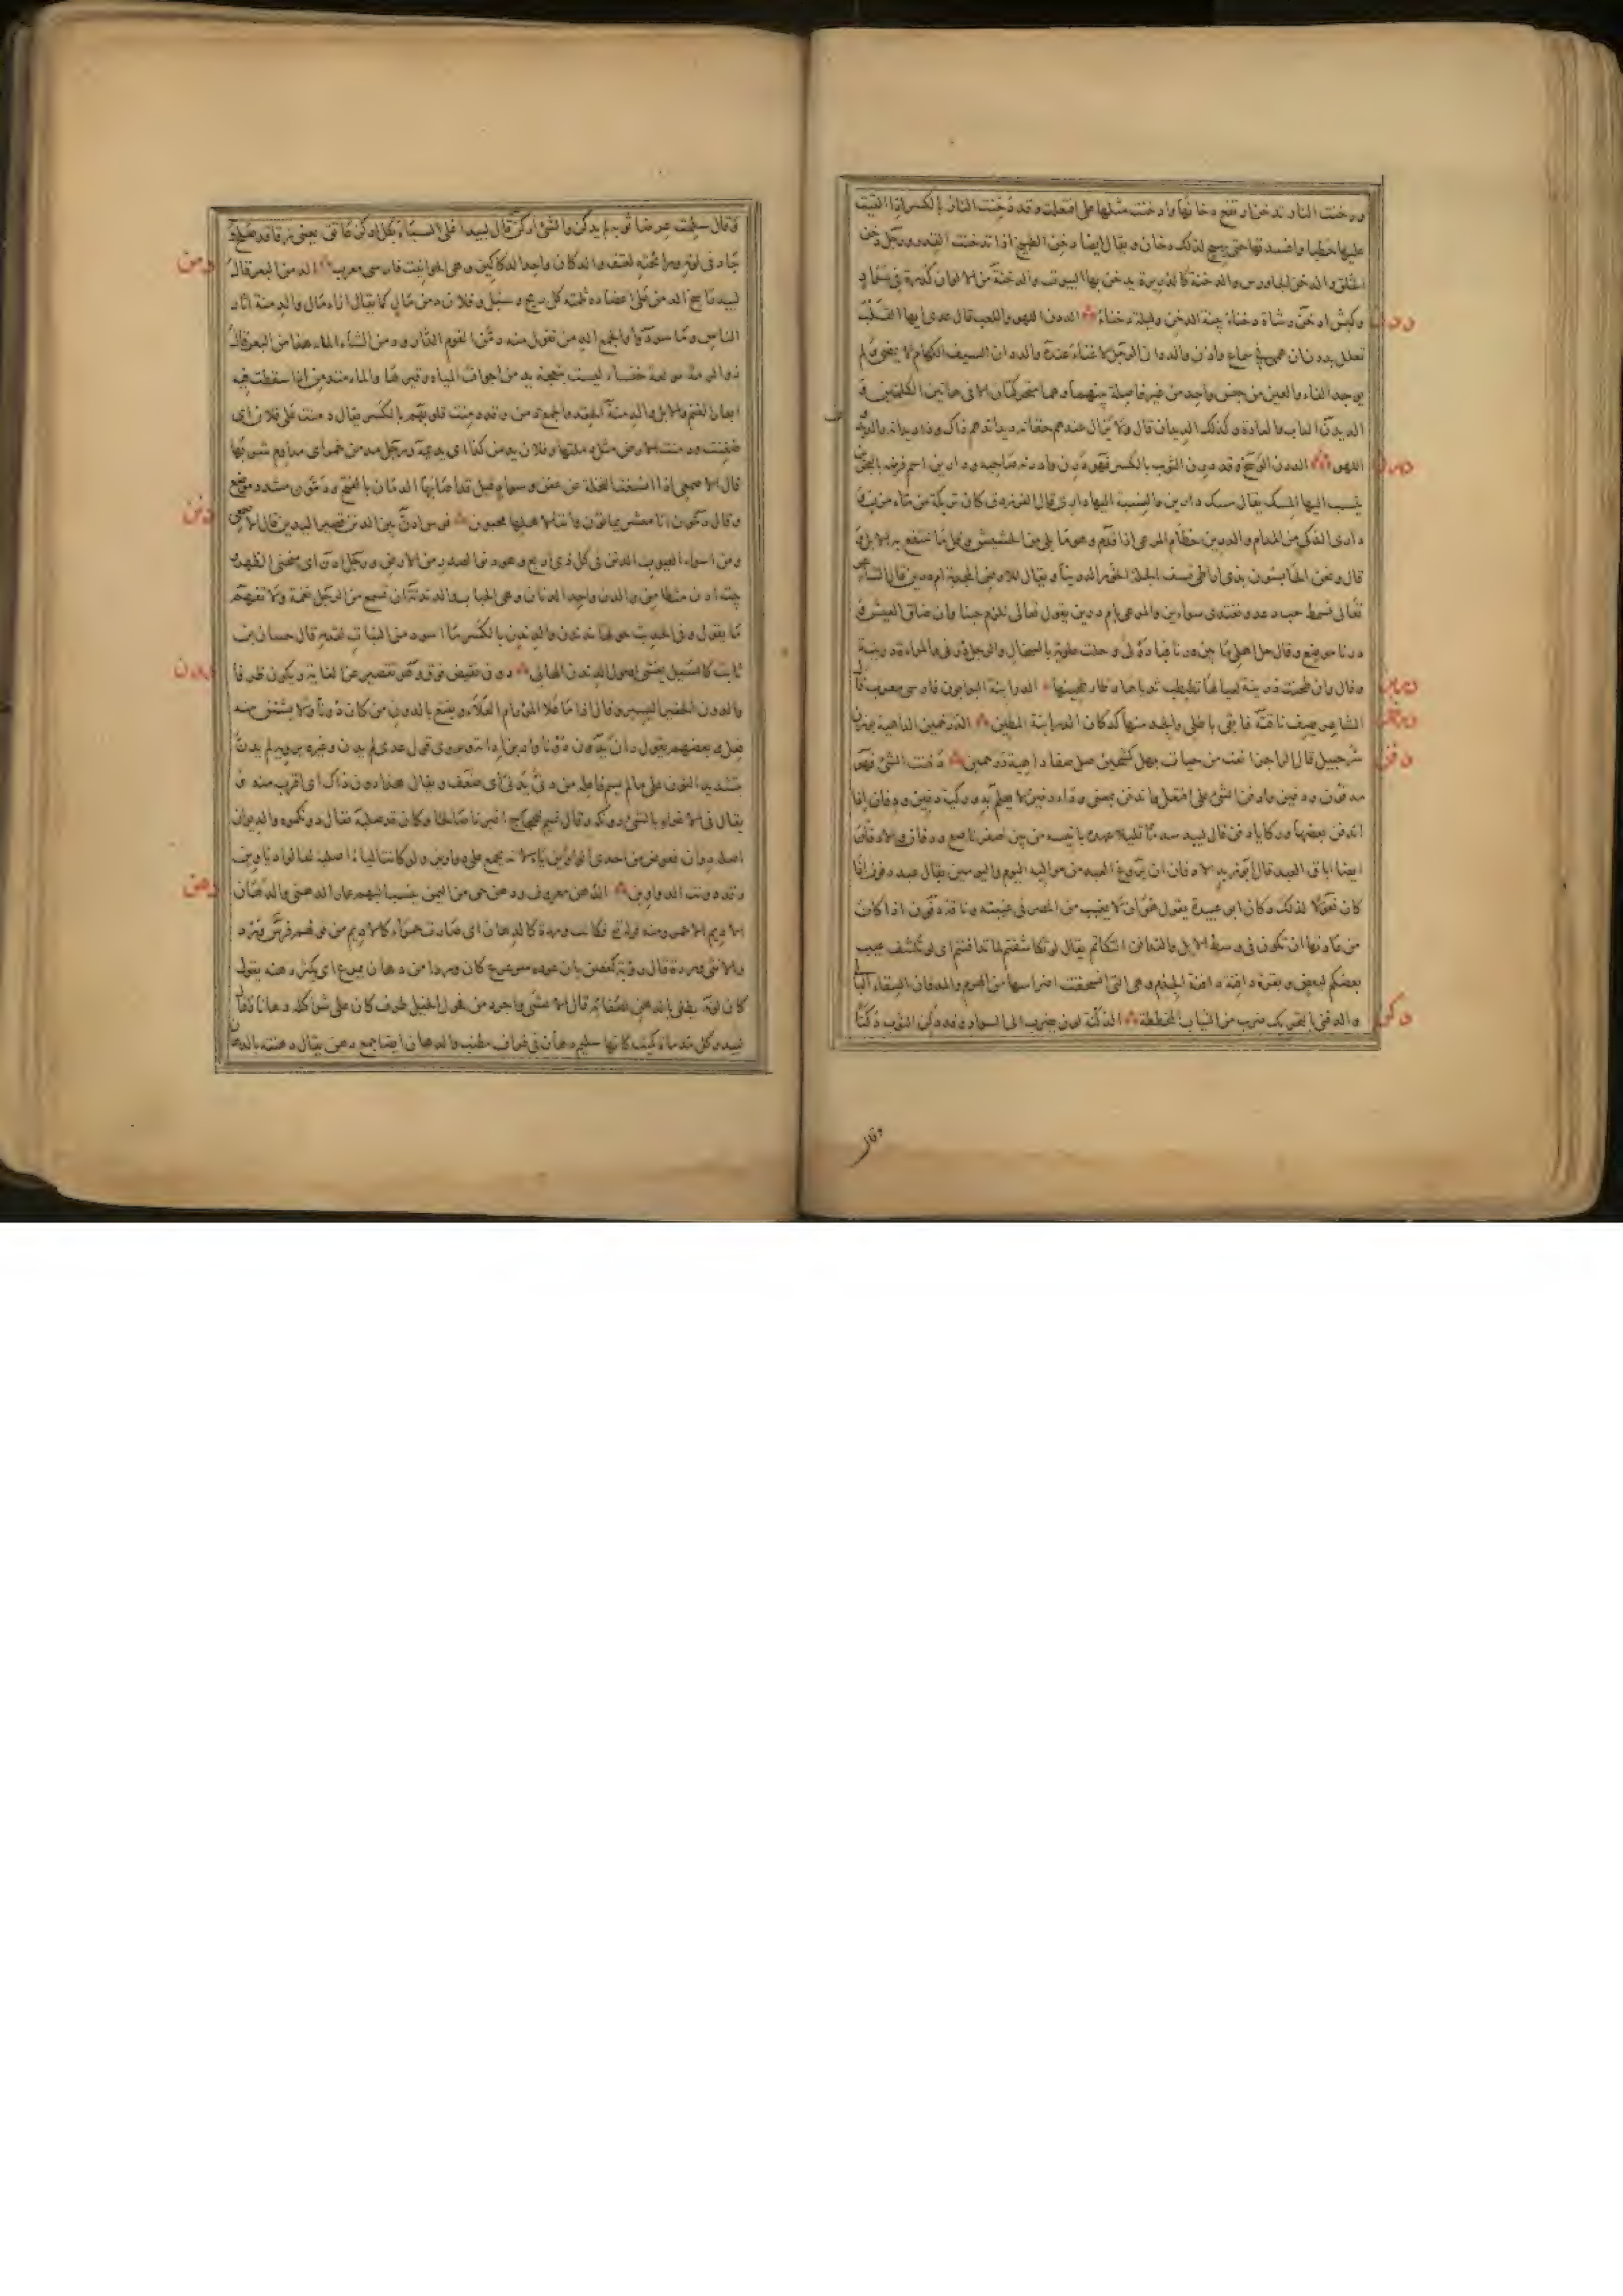 ودخنت النار تدخن ارتفع دخانها وادخنت مثلها على افتعلت وقد دخنت النار بالكسر اذا القيت
عليها حطبا وافسدتها حتى يهيج لذلك دخان ويقال ايضا دخن الطبيخ اذا تدخنت القدر ورجل دخن
الخلق والدخن الجاورس والدخنة كالذريرة يدخن بها البيوت والدخنة من الالوان كدرة في سواد
وكبش ادخن وشاة دخناء بينة الدخن وليلة دخنانة الددن اللهو واللعب قال عدى ايها القلب
ددن
تعلل بددن ان همى في سماع واذن والددان الرجل لا غناء عنده والددان السيف الكهام لا يمضي ولم
يوجد الفاء والعين من جنس واحد من غير فاصلة بينهما وهما متحركتان الا في هاتين الكلمتين
الديدن الداب والعادة وكذلك الديدان قال ولا يزال عندهم حفانه ديدانهم ذاك وذا ديدانه والديد
اللهو الدرن الوسخ وقد درن الثوب بالكسر فهو درن وادرنه صاحبه ودارين اسم فرضة بالبحرين
درن
ينسب اليها المسك يقال مسك دارين والنسبة اليها دارى قال الفرزدق كان تريكة من ماء مزن
دارى الذكي من المدام والدرين حطام المرعى اذا قدم وهو ما بلي من الحشيش وقل ما تنتفع به الابل
قال ونحن الحابسون بذى اراطى تسف الجلة الخور الدرينا ويقال للارض المجدبة ام درين قال الشاعر
تعالى نسمط حب دعد ونغتدى سوأين والمرعى بام درين يقول تعالى نلزم حبنا وان ضاق العيش
درنا موضع وقال حل اهلي ما بين درنا فبادولى وحلت علوية بالسخال
وقال الدرابنة البوابون فارسى معرب
دربن
الشاعر يصف ناقته فابقى باطلى والجد منها كدكان الدرابنة المطين الدرخمين الداهية بوزن
شرحبيل قال الراجز انعت من حيات بهل كشحين صل صفا داهية درخمين دفنت الشئ فهو
دفن
مدفون ودفين وادفن الشئ على افتعل واندفن بمعنى وداء دفين لا يعلم به وركية دفين ودفان اذا
اندفن بعضها وركايا دفن قال لبيد سدما قليلا عهده بانيسه من بين اصفر ناصع ودفان والادفان
ايضا اباق العبد قال ابو زيد الادفان ان يروغ العبد من مواليه اليوم واليومين يقال عبد دفون اذا
كان فعولا لذلك وكان ابو عبيدة يقول هو ان لا يغيب من المصر في غيبته وناقة دفون اذا كانت
من عادتها ان تكون في وسط الابل والتدافن التكاتم يقال لو تكاشفتم لما تدافنتم اى لو تكشف عيب
بعضكم لبعض وبقرة دافنة الجذم وهي التى انسحقت اضراسها من الهرم والمدفان السقاء البالى
والدفنى بالتحريك ضرب من الثياب المخططة الدكنة لون يضرب الى السواد وقد دكن الثوب دكنا
دكن
وقال
وقال سلمت عرضا ثوبه لم يدكن والشئ ادكن قال لبيد اغلى السباء بكل ادكن عاتق يعنى زقا قد صلح و
جاد في لونه ورائحته لعتقه والدكان واحد الدكاكين وهي الحوانيت فارسى معرب الدمن البعر قال
دمن
لبيد راسخ الدمن على اعضاده ثلمته كل ريح وسبل وفلان دمن مال كما يقال ازاء مال والدمنة اثار
الناس وما سودوا والجمع الدمن تقول منه دمن القوم الدار ودمن الشاء الماء هذا من البعر قال
ذو الرمة مولعة خنساء ليست بنعجة يدمن اجواف المياه وقيرها والماء متدمن اذا سقطت فيه
ابعار الغنم والابل والدمنة الحقد والجمع دمن وقد دمنت قلوبهم بالكسر يقال دمنت على فلان اى
ضغنت ودمنت الارض مثل دملتها وفلان يدمن كذا اى يديمه ورجل مدمن خمر اى مداوم شربها
قال الاصمعى اذا انسغت النخلة عن عفن وسواد قيل قد اصابها الدمان بالفتح ودمون مشدد موضع
وقال دمون انا معشر يمانون واننا لاهلها محبون فرس ادن بين الدنن قصير اليدين قال الاصمعى
دنن
ومن اسوإ العيوب الدنن في كل ذى اربع وهو دنو الصدر من الارض ورجل ادن اى منحنى الظهر
وبيت ادن متطامن والدن واحد الدنان وهي الحباب والدندنة ان تسمع من الرجل نغمة ولا تفهم
ما يقول وفي الحديث حولها ندندن والدندن بالكسر ما اسود من النبات لقدمه قال حسان بن
ثابت كالسيل يغشى اصول الدندن البالى دون نقيض فوق وهو تقصير عن الغاية ويكون ظرفا
دون
والدون الحقير الخسيس وقال اذا ما علا المرء رام العلاء ويقنع بالدون من كان دونا ولا يشتق منه
فعل وبعضهم يقول دان يدون دونا وادين ادانة ويروى قول عدى لم يدن وغيره يرويه لم يدن
بتشديد النون على ما لم يسم فاعله من دنى يدنى اى ضعف ويقال هذا دون ذاك اى اقرب منه و
يقال في الاغراء بالشئ دونكه وقال تميم للحجاج اقبرنا صالحا وكان قد صلبه فقال دونكموه والديوان
اصله دوان فعوض من احدى الواوين ياء لانه يجمع على دواوين ولو كانت الياء اصلية لقالوا دياوين
وقد دونت الدواوين الدهن معروف ودهن حى من اليمن ينسب اليهم عمار الدهنى والدهان
دهن
الاديم الاحمر ومنه قوله تع فكانت وردة كالدهان اى صارت حمراء كالاديم من قولهم فرس ورد
والانثى وردة قال رؤبة كغصن بان عوده سرعرع كان وردا من دهان يمرع اى يكثر دهنه يقول
كان لونه يعلى بالدهن لصفائه قال الاعشى واجرد من فحول الخيل طرف كان على شواكله دهانا وقال
لبيد وكل مدماة كميت كانها سليم دهان في طراف مطنب والدهان ايضا جمع دهن يقال دهنته بالدهان